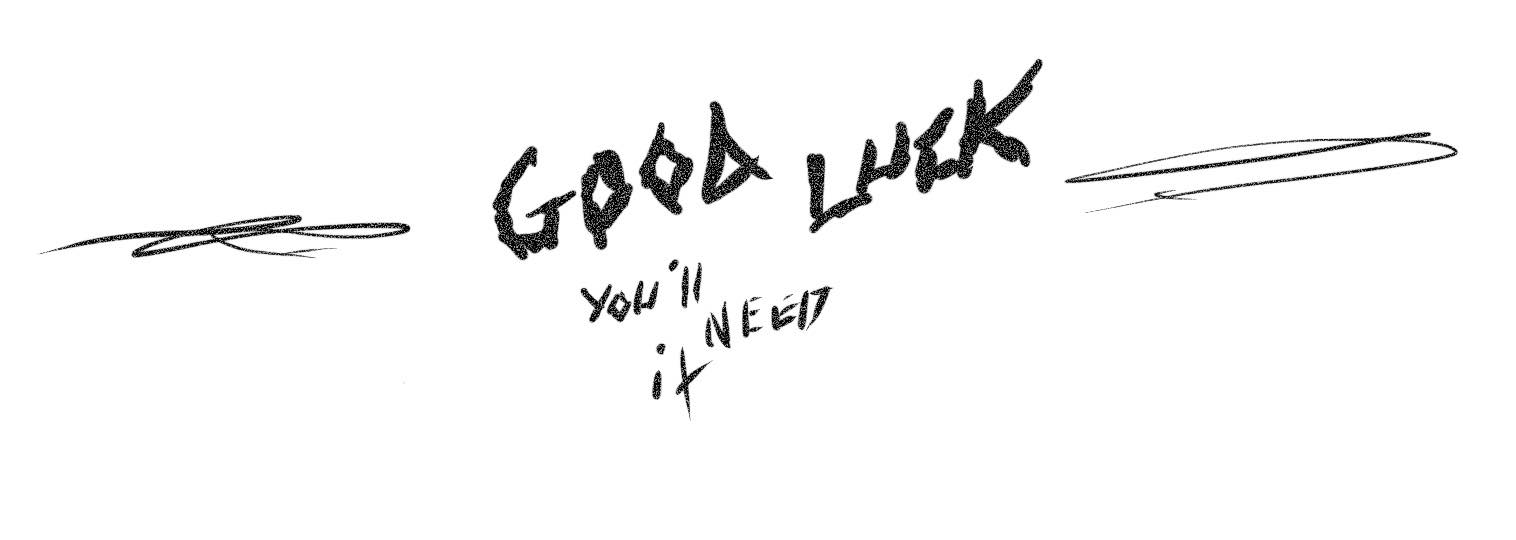 GOOD LUCK
You'll NEED
it